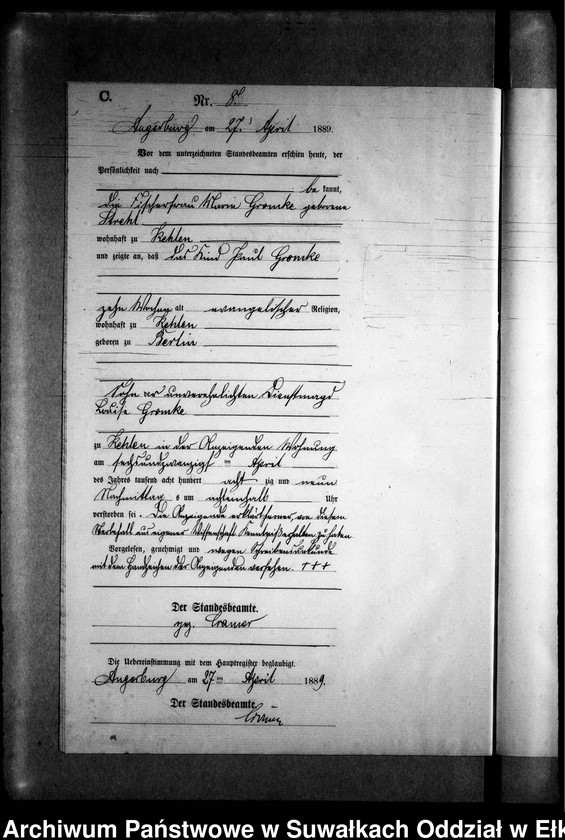 C.
Nr. 8.
Angerburg am 27. April 1889.
Vor dem unterzeichneten Standesbeamten erschien heute, der
Persönlichkeit nach
be kannt,
die Fischerfrau Marie Gromke geborene
Strehl
wohnhaft zu Kehlen
und zeigte an, daß das Kind Paul Gromke
zehn Wochen alt evangelischer Religion,
wohnhaft zu Kehlen
geboren zu Berlin
Sohn der unverehelichten Dienstmagd
Louise Gromke
zu Kehlen in der Anzeigenden Wohnung
am sechsundzwanzigsten April
des Jahres tausend acht hundert acht zig und neun
Nachmittag s um achteinhalb Uhr
verstorben sei. Die Anzeigende erklärt ferner, von diesem
Sterbefall aus eigener Wissenschaft Kenntniß erhalten zu haben
Vorgelesen, genehmigt und wegen Schreibensunkunde
mit dem Handzeichen der Anzeigenden versehen. +++
Der Standesbeamte.
gez. Cramer
Die Uebereinstimmung mit dem Hauptregister beglaubigt.
Angerburg am 27 ten April 1889.
Der Standesbeamte.
Cramer
Archiwum Państwowe w Suwałkach Oddział w Ełk